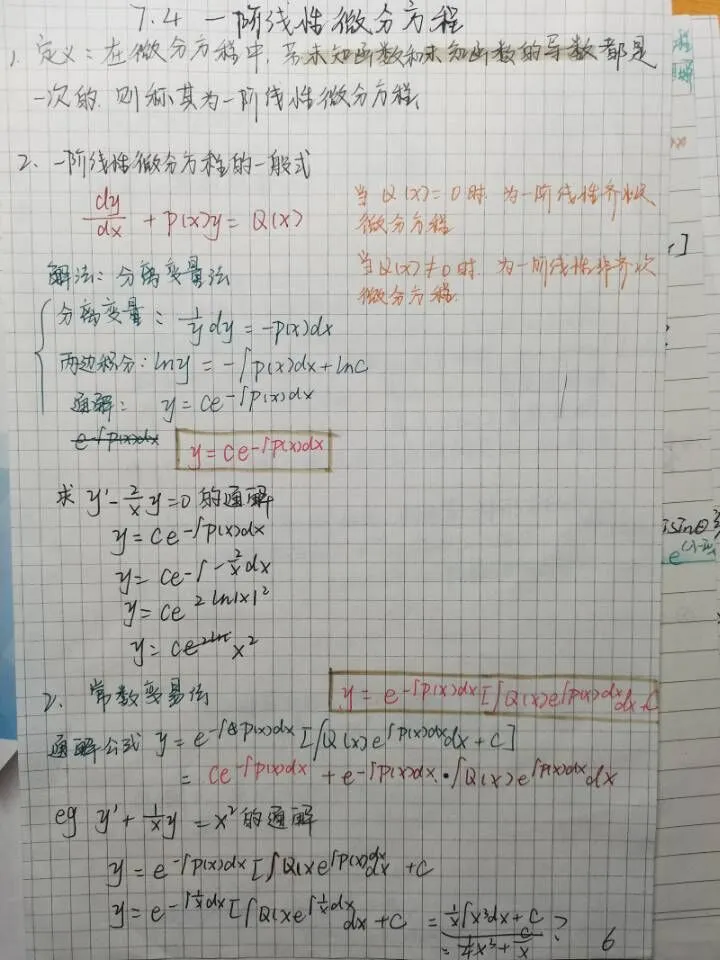 7.4 一阶线性微分方程
1. 定义：在微分方程中,若未知函数和未知函数的导数都是
一次的,则称其为一阶线性微分方程.
2、一阶线性微分方程的一般式
dy/dx + p(x)y = Q(x)
当 Q(x)=0时.为一阶线性齐次
微分方程
当Q(x)≠0时.为一阶线性非齐次
微分方程.
解法：分离变量法
分离变量：1/y dy = -p(x)dx
两边积分：lny = -∫p(x)dx+lnC
通解： y = Ce^-∫p(x)dx
e^-∫p(x)dx
y = Ce^-∫p(x)dx
求 y'-2/x y=0 的通解
y = Ce^-∫p(x)dx
y = Ce^-∫-2/x dx
y = Ce^2ln|x|^2
y = Ce^2ln x^2
2. 常数变易法
y = e^-∫p(x)dx[∫Q(x)e^∫p(x)dx dx+C
通解公式 y = e^-∫p(x)dx[∫Q(x)e^∫p(x)dx dx + C]
= Ce^-∫p(x)dx + e^-∫p(x)dx·∫Q(x)e^∫p(x)dx dx
eg y'+1/x y = x^2 的通解
y = e^-∫p(x)dx[∫Q(x e^∫p(x)dx dx + C
y = e^-∫1/x dx[∫Q(x e^∫1/x dx dx + C = 1/x∫x^3dx + C
= 1/4x^3 + C/x ?
6
isinθ